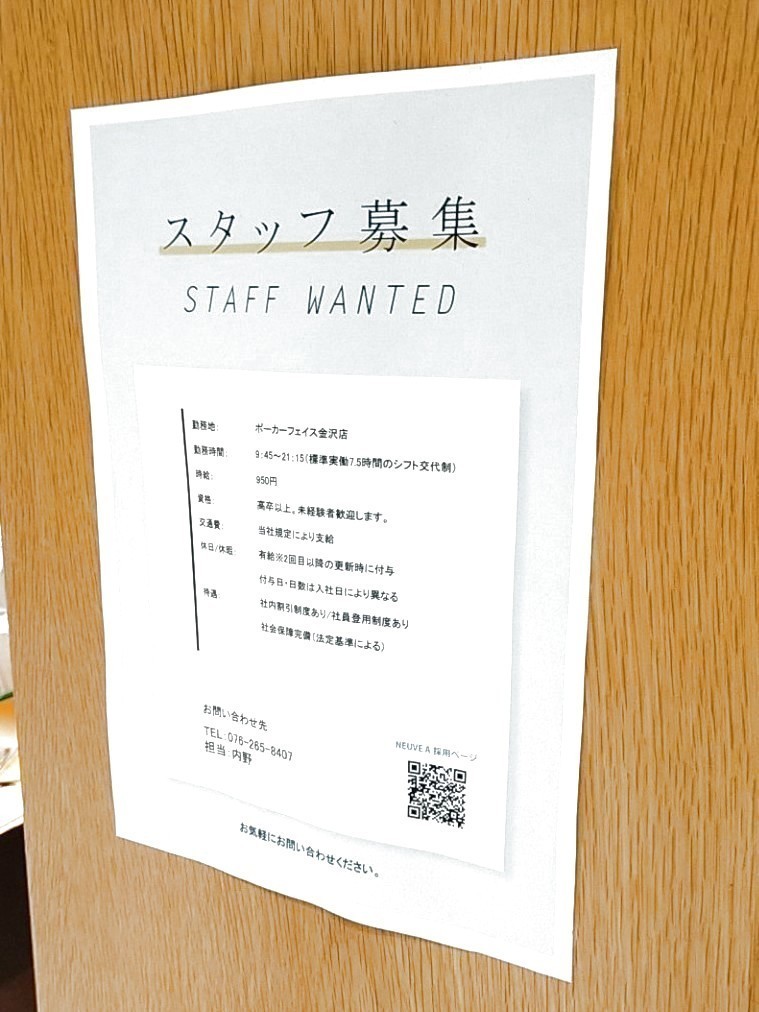 スタッフ募集
STAFF WANTED
勤務地: ポーカーフェイス金沢店
勤務時間: 9:45～21:15(標準実働7.5時間のシフト交代制)
時給: 950円
資格: 高卒以上。未経験者歓迎します。
交通費: 当社規定により支給
休日/休暇: 有給※2回目以降の更新時に付与
付与日・日数は入社日により異なる
待遇: 社内割引制度あり/社員登用制度あり
社会保障完備(法定基準による)
お問い合わせ先
TEL:076-265-8407
担当:内野
NEUVE A 採用ページ
お気軽にお問い合わせください。